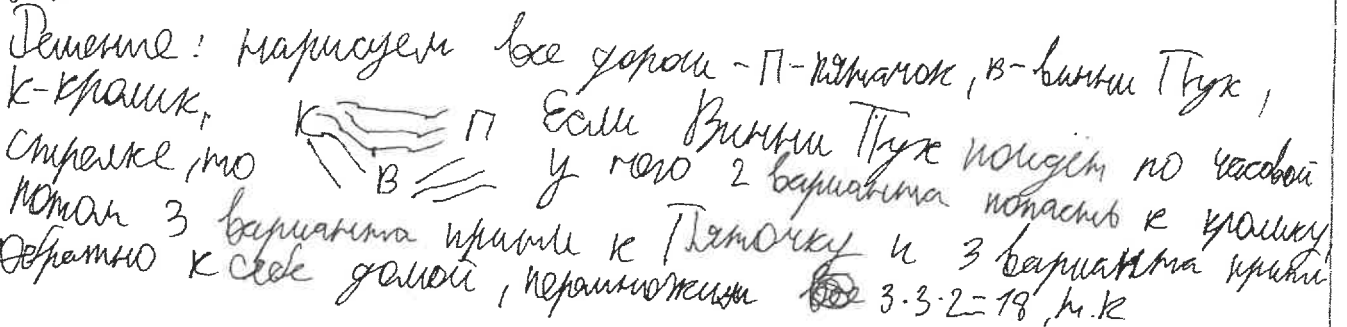 Решение: нарисуем все дороги - П - пятачок, в - винни Пух,
К - кролик, К П В Если Винни Пух пойдёт по часовой
стрелке, то у него 2 варианта попасть к кролику,
потом 3 варианта прийти к Пяточку и 3 варианта прийти
Обратно к себе домой, перемножим все 3·3·2=18, т.к